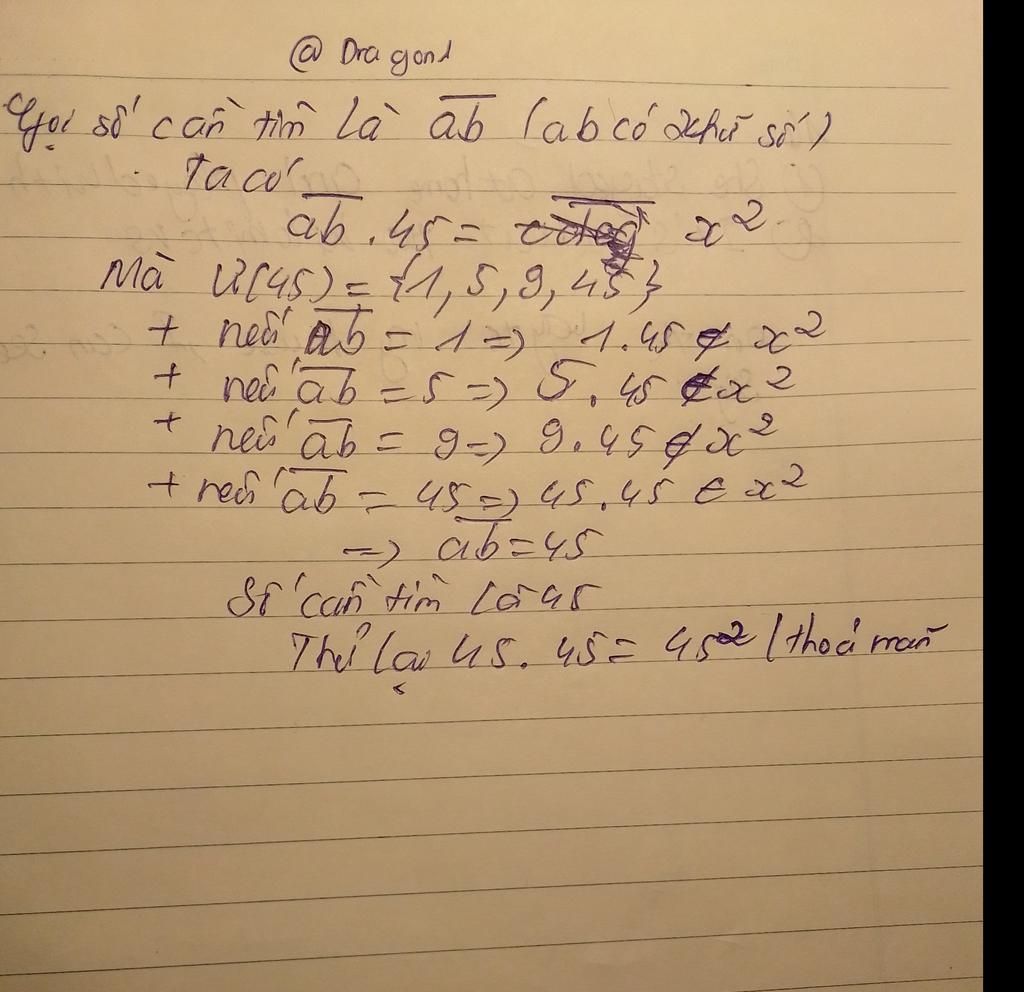 @ Dragon1
Gọi số cần tìm là ab (ab có 2 chữ số)
Ta có
ab . 45 = x²
Mà Ư(45) = {1, 5, 9, 45}
+ nếu ab = 1 => 1.45 ∉ x²
+ nếu ab = 5 => 5.45 ∉ x²
+ nếu ab = 9 => 9.45 ∉ x²
+ nếu ab = 45 => 45.45 ∈ x²
=> ab = 45
Số cần tìm là 45
Thử lại 45.45 = 45² (thoả mãn